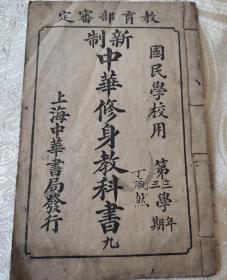 教育部審定
國民學校用
第三學年
第三學期
新制
中華修身教科書 九
上海中華書局發行